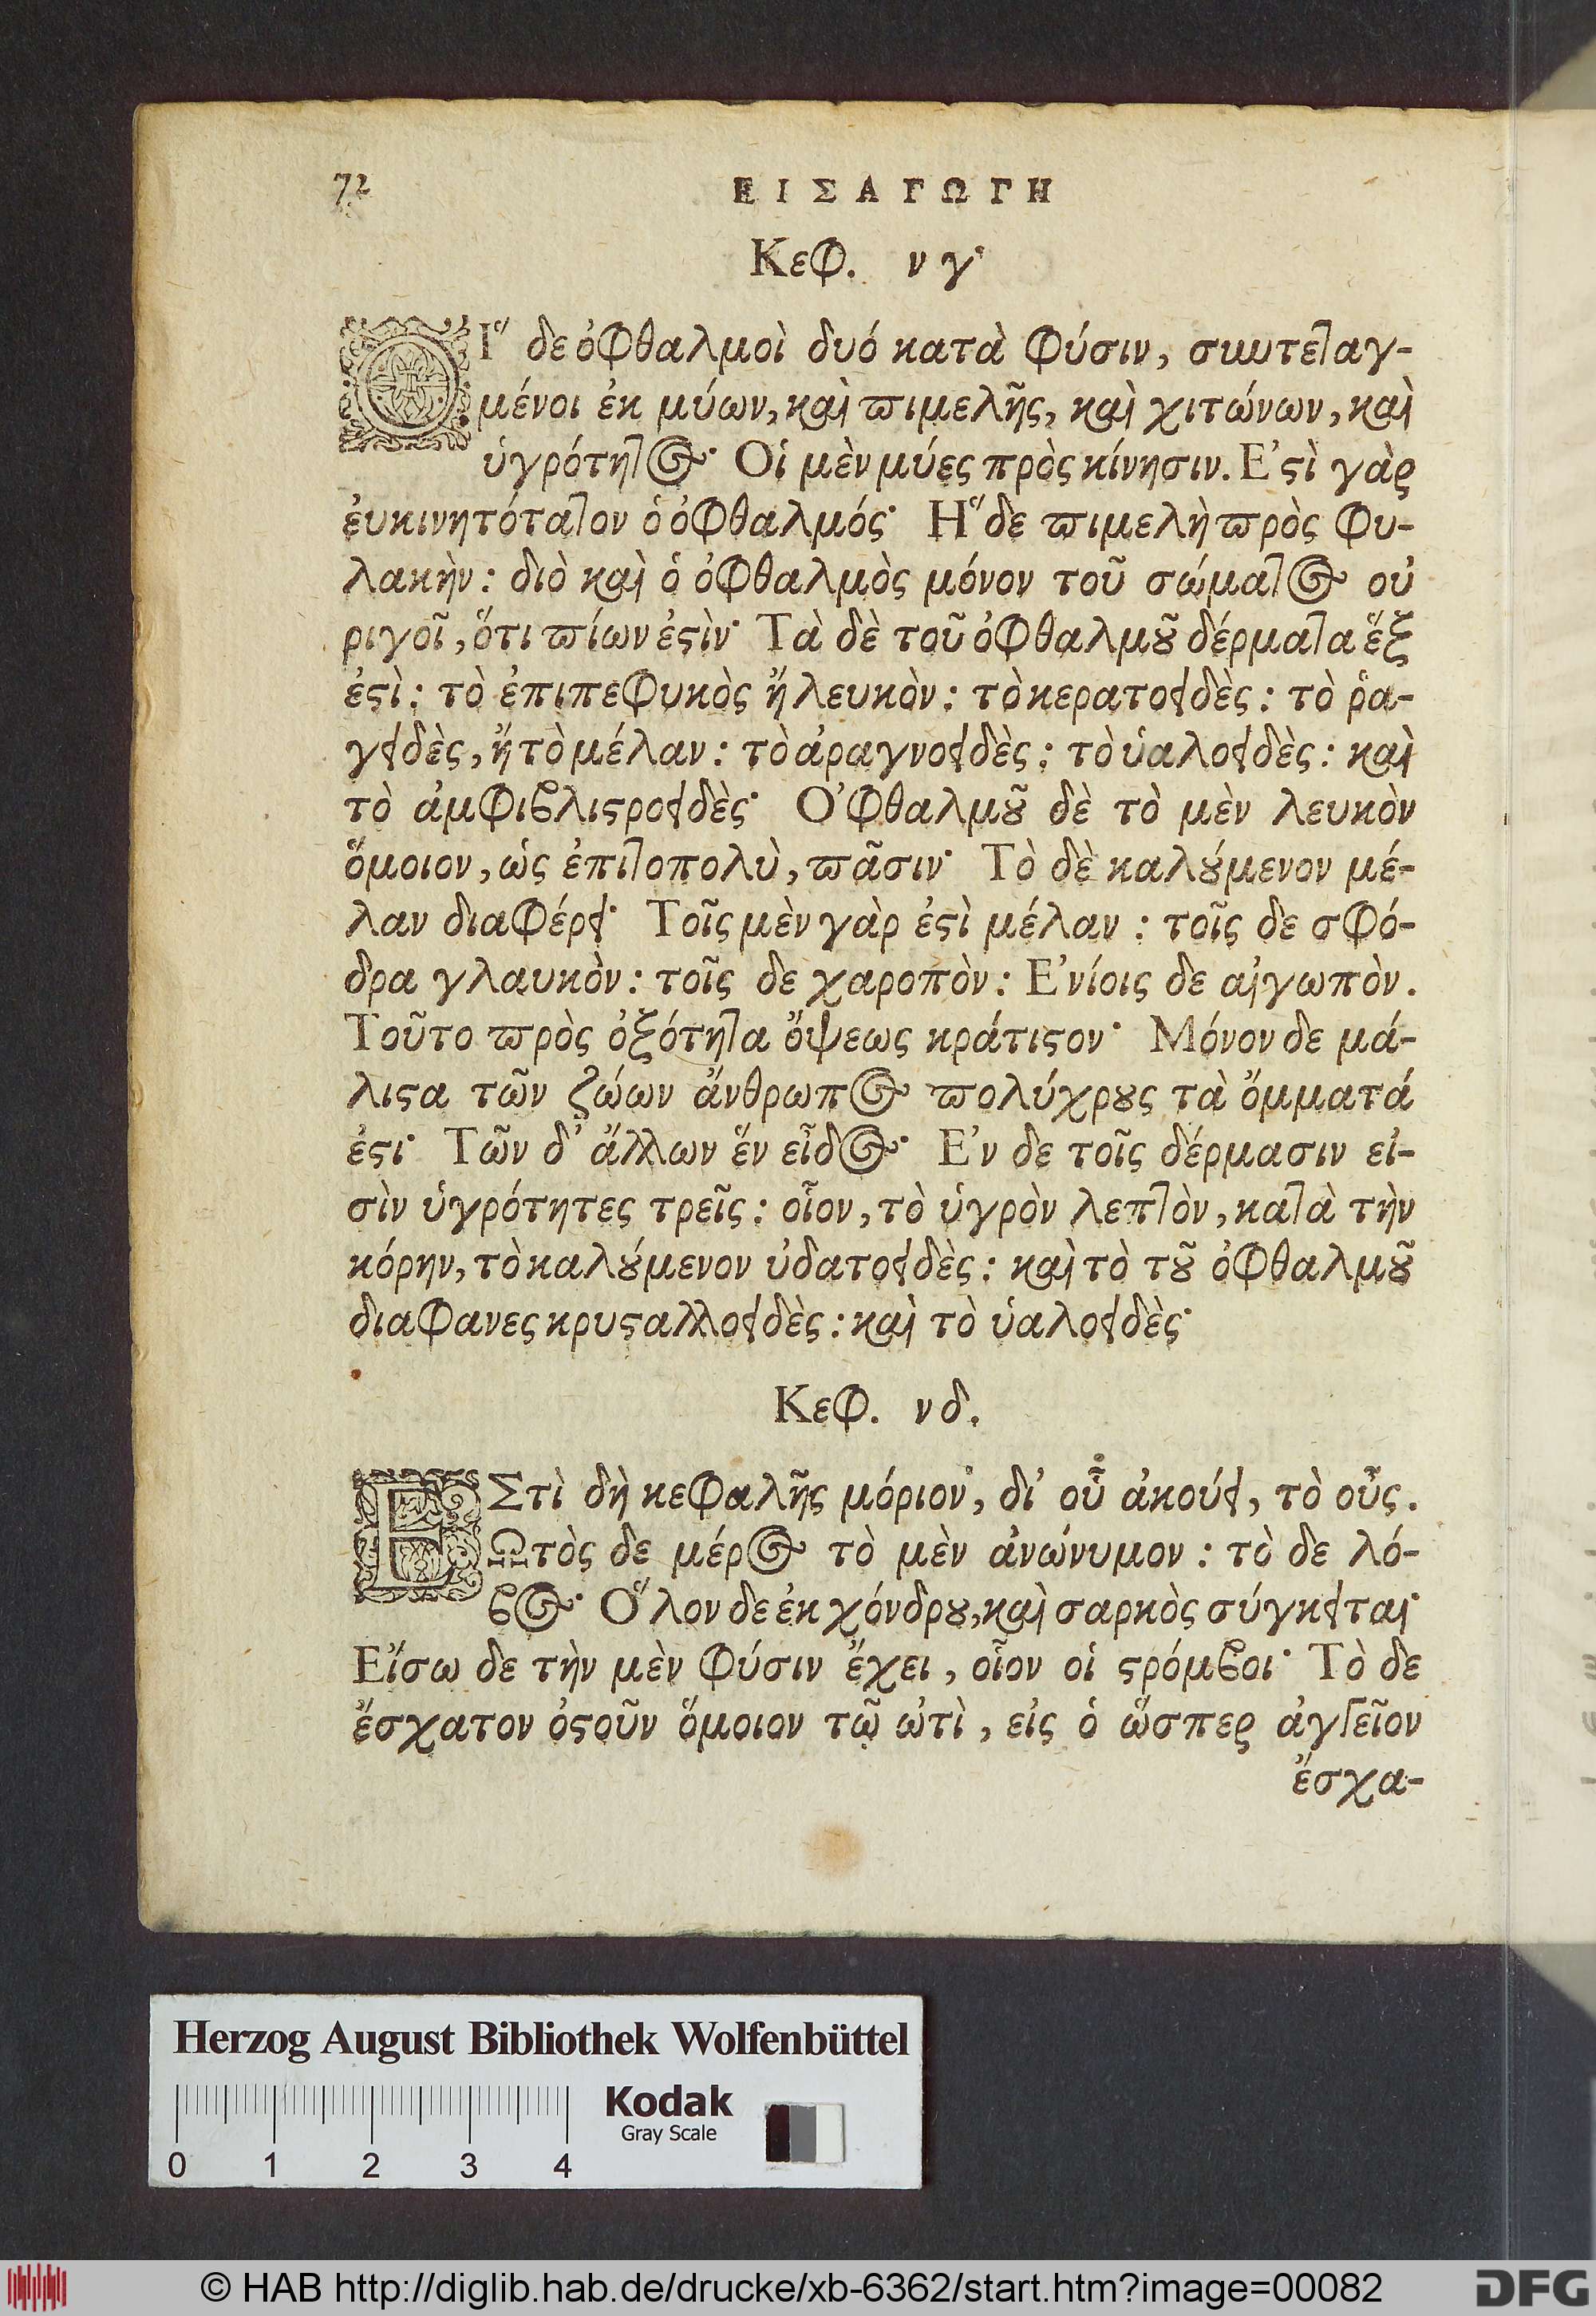 72
ΕΙΣΑΓΩΓΗ
Κεφ. νγ·
ΟΙ῞ δε ὀφθαλμοὶ δυό κατὰ φύσιν, συντεταγ-
μένοι ἐκ μύων, καὶ πιμελῆς, καὶ χιτώνων, καὶ
ὑγρότητος· Οἱ μὲν μύες πρὸς κίνησιν. Ε᾿στὶ γὰρ
ἐυκινητότατον ὁ ὀφθαλμός· Η῞ δε πιμελὴ πρὸς φυ-
λακὴν: διὸ καὶ ὁ ὀφθαλμὸς μόνον τοῦ σώματος οὐ
ριγοῖ, ὅτι πίων ἐστὶν· Τὰ δὲ τοῦ ὀφθαλμοῦ δέρματα ἕξ
ἐστὶ: τὸ ἐπιπεφυκὸς ἤ λευκὸν: τὸ κερατοειδὲς: τὸ ῥα-
γειδὲς, ἤ τὸ μέλαν: τὸ ἀραγνοειδὲς: τὸ ὑαλοειδὲς: καὶ
τὸ ἀμφιβλιστροειδὲς· Ο᾿φθαλμοῦ δὲ τὸ μὲν λευκὸν
ὅμοιον, ὡς ἐπιτοπολὺ, πᾶσιν· Τὸ δὲ καλούμενον μέ-
λαν διαφέρει· Τοῖς μὲν γὰρ ἐστὶ μέλαν: τοῖς δε σφό-
δρα γλαυκὸν: τοῖς δε χαροπὸν: Ε᾿νίοις δε αἰγωπὸν.
Τοῦτο πρὸς ὀξότητα ὄψεως κράτιστον· Μόνον δε μά-
λιστα τῶν ζώων ἄνθρωπος πολύχρους τὰ ὄμματά
ἐστι· Τῶν δ᾿ ἄλλων ἕν εἶδος· Ε᾿ν δε τοῖς δέρμασιν εἰ-
σὶν ὑγρότητες τρεῖς: οἷον, τὸ ὑγρὸν λεπτὸν, κατὰ τὴν
κόρην, τὸ καλούμενον ὑδατοειδὲς: καὶ τὸ τοῦ ὀφθαλμοῦ
διαφανες κρυσταλλοειδὲς: καὶ τὸ ὑαλοειδὲς·
Κεφ. νδ.
ΕΣτὶ δὴ κεφαλῆς μόριον, δι᾿ οὗ ἀκούει, τὸ οὖς.
Ωτὸς δε μέρος τὸ μὲν ἀνώνυμον: τὸ δε λό-
βος· Ο῞λον δε ἐκ χόνδρου, καὶ σαρκὸς σύγκειται·
Εἴσω δε τὴν μὲν φύσιν ἔχει, οἷον οἱ στρόμβοι· Τὸ δε
ἔσχατον ὀστοῦν ὅμοιον τῷ ὠτὶ, εἰς ὁ ὥσπερ ἀγγεῖον
ἔσχα-
Herzog August Bibliothek Wolfenbüttel
Kodak
Gray Scale
0 1 2 3 4
© HAB http://diglib.hab.de/drucke/xb-6362/start.htm?image=00082
DFG